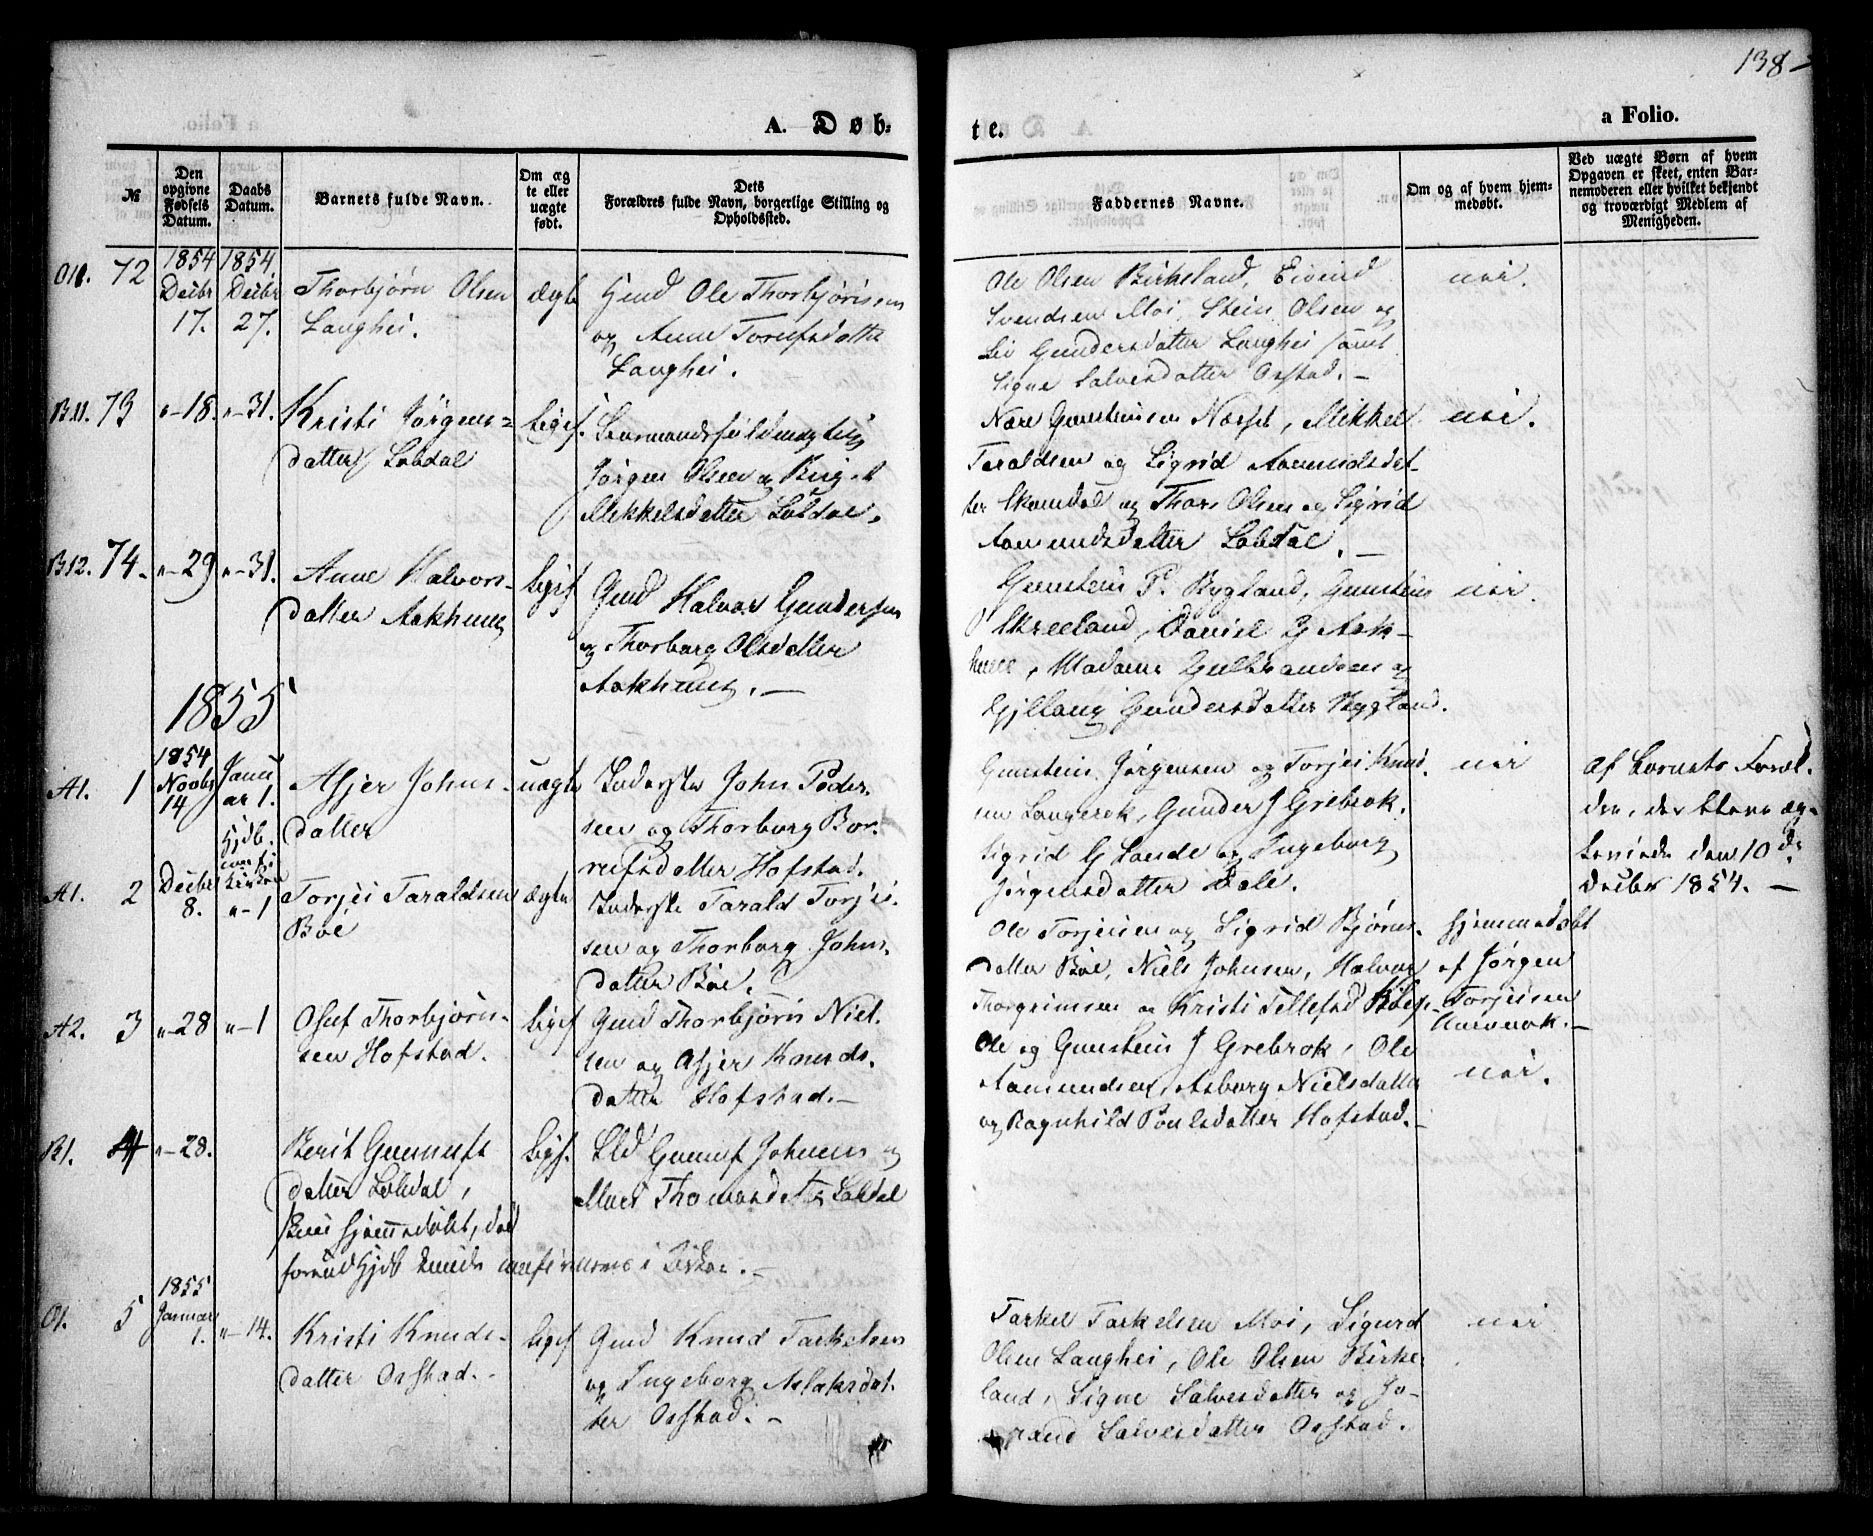 138
A. Døb-
te.
a Folio.
№
Den opgivne Fødsels Datum.
Daabs Datum.
Barnets fulde Navn.
Om æg te eller uægte født.
Dets Forældres fulde Navn, borgerlige Stilling og Opholdssted.
Faddernes Navne.
Om og af hvem hjem- medøbt.
Ved uægte Børn af hvem Opgaven er skeet, enten Bar- nemoderen eller hvilket bekjendt og troværdigt Medlem af Menigheden.
O11. 72
1854 Decbr 17.
1854 Decbr 27.
Thorbjørn Olsen
Langhei.
ægte
Gmd Ole Thorbjørnsen
og Anne Torufsdatter
Langhei.
Ole Olsen Birkeland, Eivind
Svendsen Moi, Stein Olsen og
Liv Gundersdatter Langhei samt
Signe Salvesdatter Osstad. —
nei.
B11. 73
"-18.
"-31.
Kristi Jørgens-
datter Lobdal
liges.
Jørgen Olsen og Birgit
Mikkelsdatter Lobdal.
Nære Gunsteinsen Næsset, Mikkel
Taraldsen og Sigrid Aamundsdat-
ter Skomdal og Thore Olsen og Sigrid
Aamundsdatter Lobdal. —
nei.
B12. 74.
"-29
"-31.
Anne Halvors-
datter Aakhuus
liges
Gmd Halvor Gundersen
og Thorborg Olsdatter
Aakhuus. —
Gunstein P. Bygland, Gunstein
O Skreeland, Daniel G Aak-
huus, Madame Gulbrandsen og
Gjellaug Gundersdatter Bygland.
nei.
1855
A1. 1
1854 Novbr 14
Janu ar 1.
Asjer Johns-
datter
uægte
Inderste John Peder-
sen og Thorborg Bor-
rufsdatter Hofstad.
Gunstein Jørgensen og Torjei Knud-
sen Langerok, Gunder J Grebrok.
Sigrid G Lande og Ingeborg
Jørgensdatter Dale.
nei
af Barnets Foræl-
dre, der bleve æg-
teviede den 10de
Decbr 1854. —
A1. 2
Decbr 8.
Hjdb.
"-1
Torjei Taraldsen
Bøe
ægte
Inderste Tarald Torjei-
sen og Thorborg Johns-
datter Bøe.
Ole Torjeisen og Sigrid Bjørns-
datter Bøe, Niels Johnsen, Halvor
Thorgrimsen og Kristi Tellefsd Bøe
hjemmedøbt
af Jørgen
Torjeisen
A2. 3
"-28
"-1
Osuf Thorbjørn-
sen Hofstad.
liges
Gmd Thorbjørn Niel-
sen og Asjer Knuds-
datter Hofstad. —
Ole og Gunstein J Grebrok, Ole
Aamundsen, Asborg Nielsdatter
og Ragnhild Poulsdatter Hofstad. —
nei.
B1. 4
"-28.
Berit Gunnufs
datter Lobdal,
hjemmedøbt, død
ligs.
Gunnuf Johnsen og
Mari Thomasdatter Lobdal
O1. 5
1855 Januar 1.
"-14.
Kristi Knuds-
datter Osstad. -
liges
Gmd Knud Tarkelsen
og Ingeborg Aslaksdat-
ter Osstad. -
Tarkel Tarkelsen Moi, Sigurd
Olsen Langhei, Ole Olsen Birke-
land, Signe Salvesdatter og Jo-
rand Salvesdatter Osstad.
nei